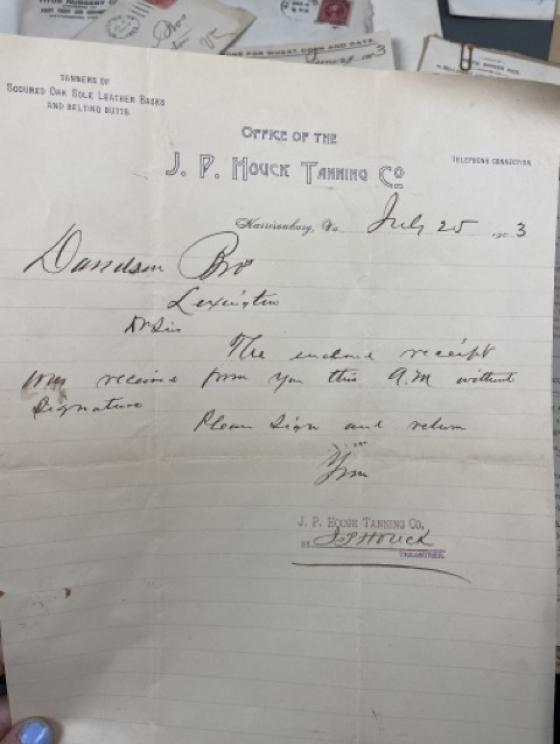 TANNERS OF
SCOURED OAK SOLE LEATHER BACKS
AND BELTING BUTTS.
OFFICE OF THE
J. P. HOUCK TANNING CO
TELEPHONE CONNECTION
Harrisonburg, Va. July 25 1903
Davidson Bro
Lexington
Dr Sirs
The enclosed receipt
was received from you this A.M without
Signature
Please sign and return
Yours
J. P. HOUCK TANNING CO.
BY J P Houck
TREASURER.